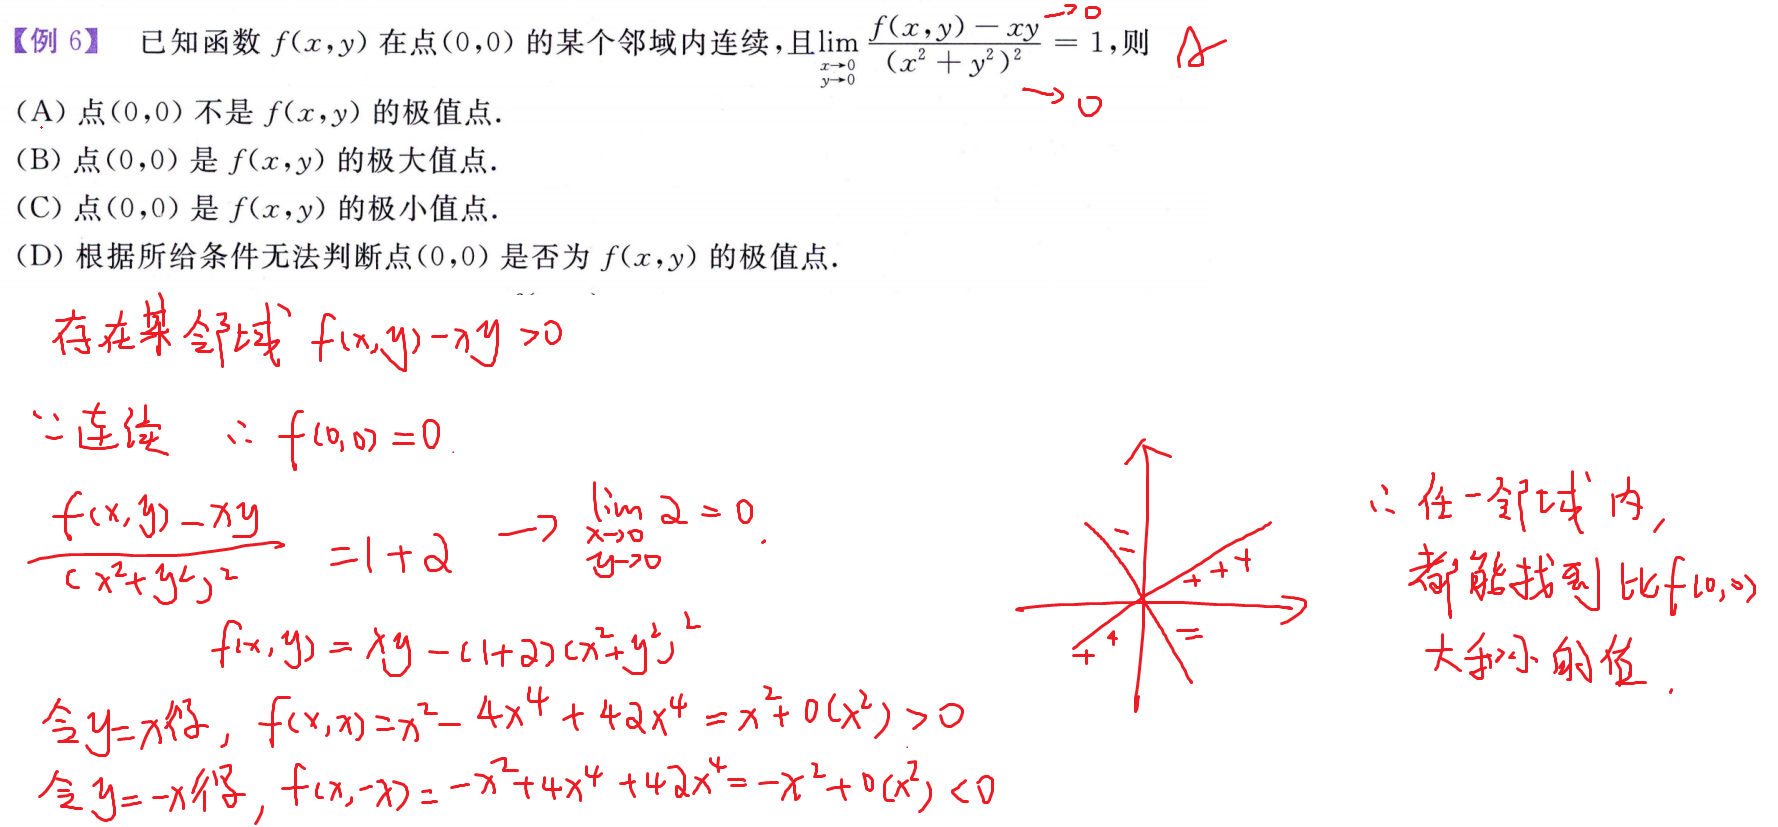 【例 6】 已知函数 f(x,y) 在点(0,0) 的某个邻域内连续,且 lim_{x→0 y→0} (f(x,y) − xy)/(x² + y²)² = 1,则 A
→0
→0
(A) 点(0,0) 不是 f(x,y) 的极值点.
(B) 点(0,0) 是 f(x,y) 的极大值点.
(C) 点(0,0) 是 f(x,y) 的极小值点.
(D) 根据所给条件无法判断点(0,0) 是否为 f(x,y) 的极值点.
存在某邻域 f(x,y)−xy>0
∵连续 ∴ f(0,0)=0.
(f(x,y)−xy)/(x²+y²)² =1+α → lim_{x→0 y→0} α=0.
f(x,y)=xy−(1+α)(x²+y²)²
令y=x得, f(x,x)=x²−4x⁴+4αx⁴=x²+o(x²)>0
令y=−x得, f(x,−x)=−x²+4x⁴+4αx⁴=−x²+o(x²)<0
∴任一邻域内,
都能找到比f(0,0)
大和小的值.